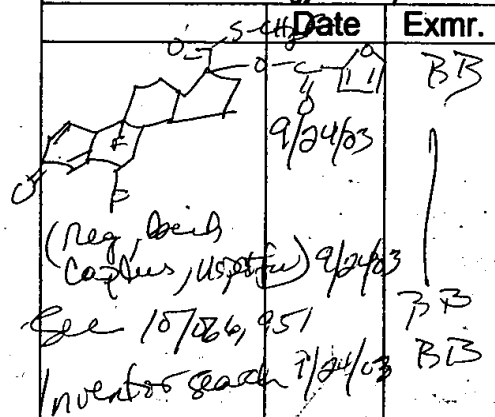 Date Exmr.
O S-CH2F
O C O BB
O
F 9/24/03
O F
(Reg, 
Caplus, uspatfull) 9/24/03
See 10/066,951 BB
Inventor search 9/24/03 BB